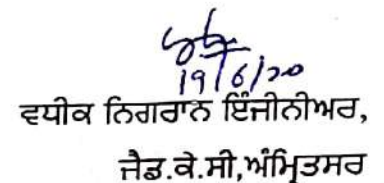 19/6/20
ਵਧੀਕ ਨਿਗਰਾਨ ਇੰਜੀਨੀਅਰ,
ਜੈਡ.ਕੇ.ਸੀ,ਅੰਮ੍ਰਿਤਸਰ